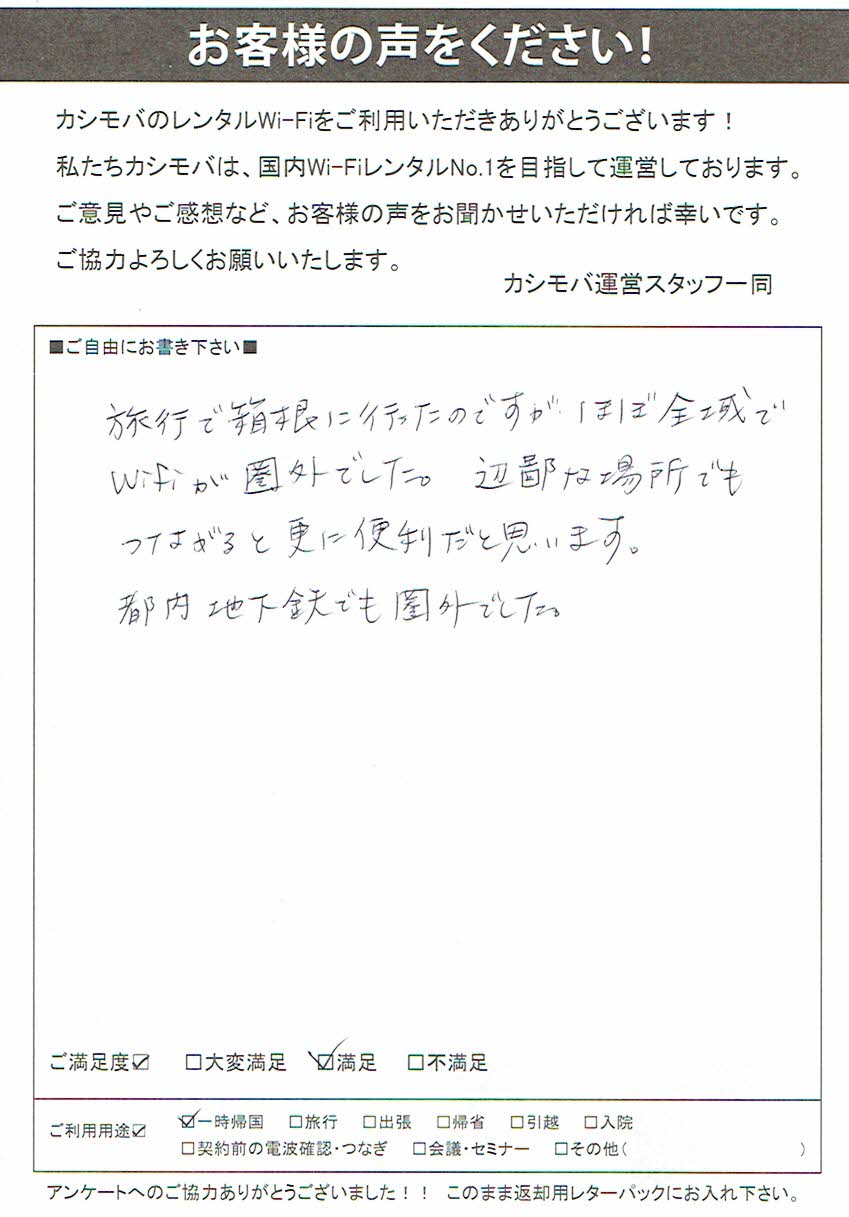 お客様の声をください!
カシモバのレンタルWi-Fiをご利用いただきありがとうございます！
私たちカシモバは、国内Wi-FiレンタルNo.1を目指して運営しております。
ご意見やご感想など、お客様の声をお聞かせいただければ幸いです。
ご協力よろしくお願いいたします。
カシモバ運営スタッフ一同
■ご自由にお書き下さい■
旅行で箱根に行ったのですが ほぼ全域で
Wifiが圏外でした。 辺鄙な場所でも
つながると更に便利だと思います。
都内地下鉄でも圏外でした。
ご満足度☑ □大変満足 ☑満足 □不満足
ご利用用途☑ ☑一時帰国 □旅行 □出張 □帰省 □引越 □入院
□契約前の電波確認・つなぎ □会議・セミナー □その他( )
アンケートへのご協力ありがとうございました！！ このまま返却用レターパックにお入れ下さい。